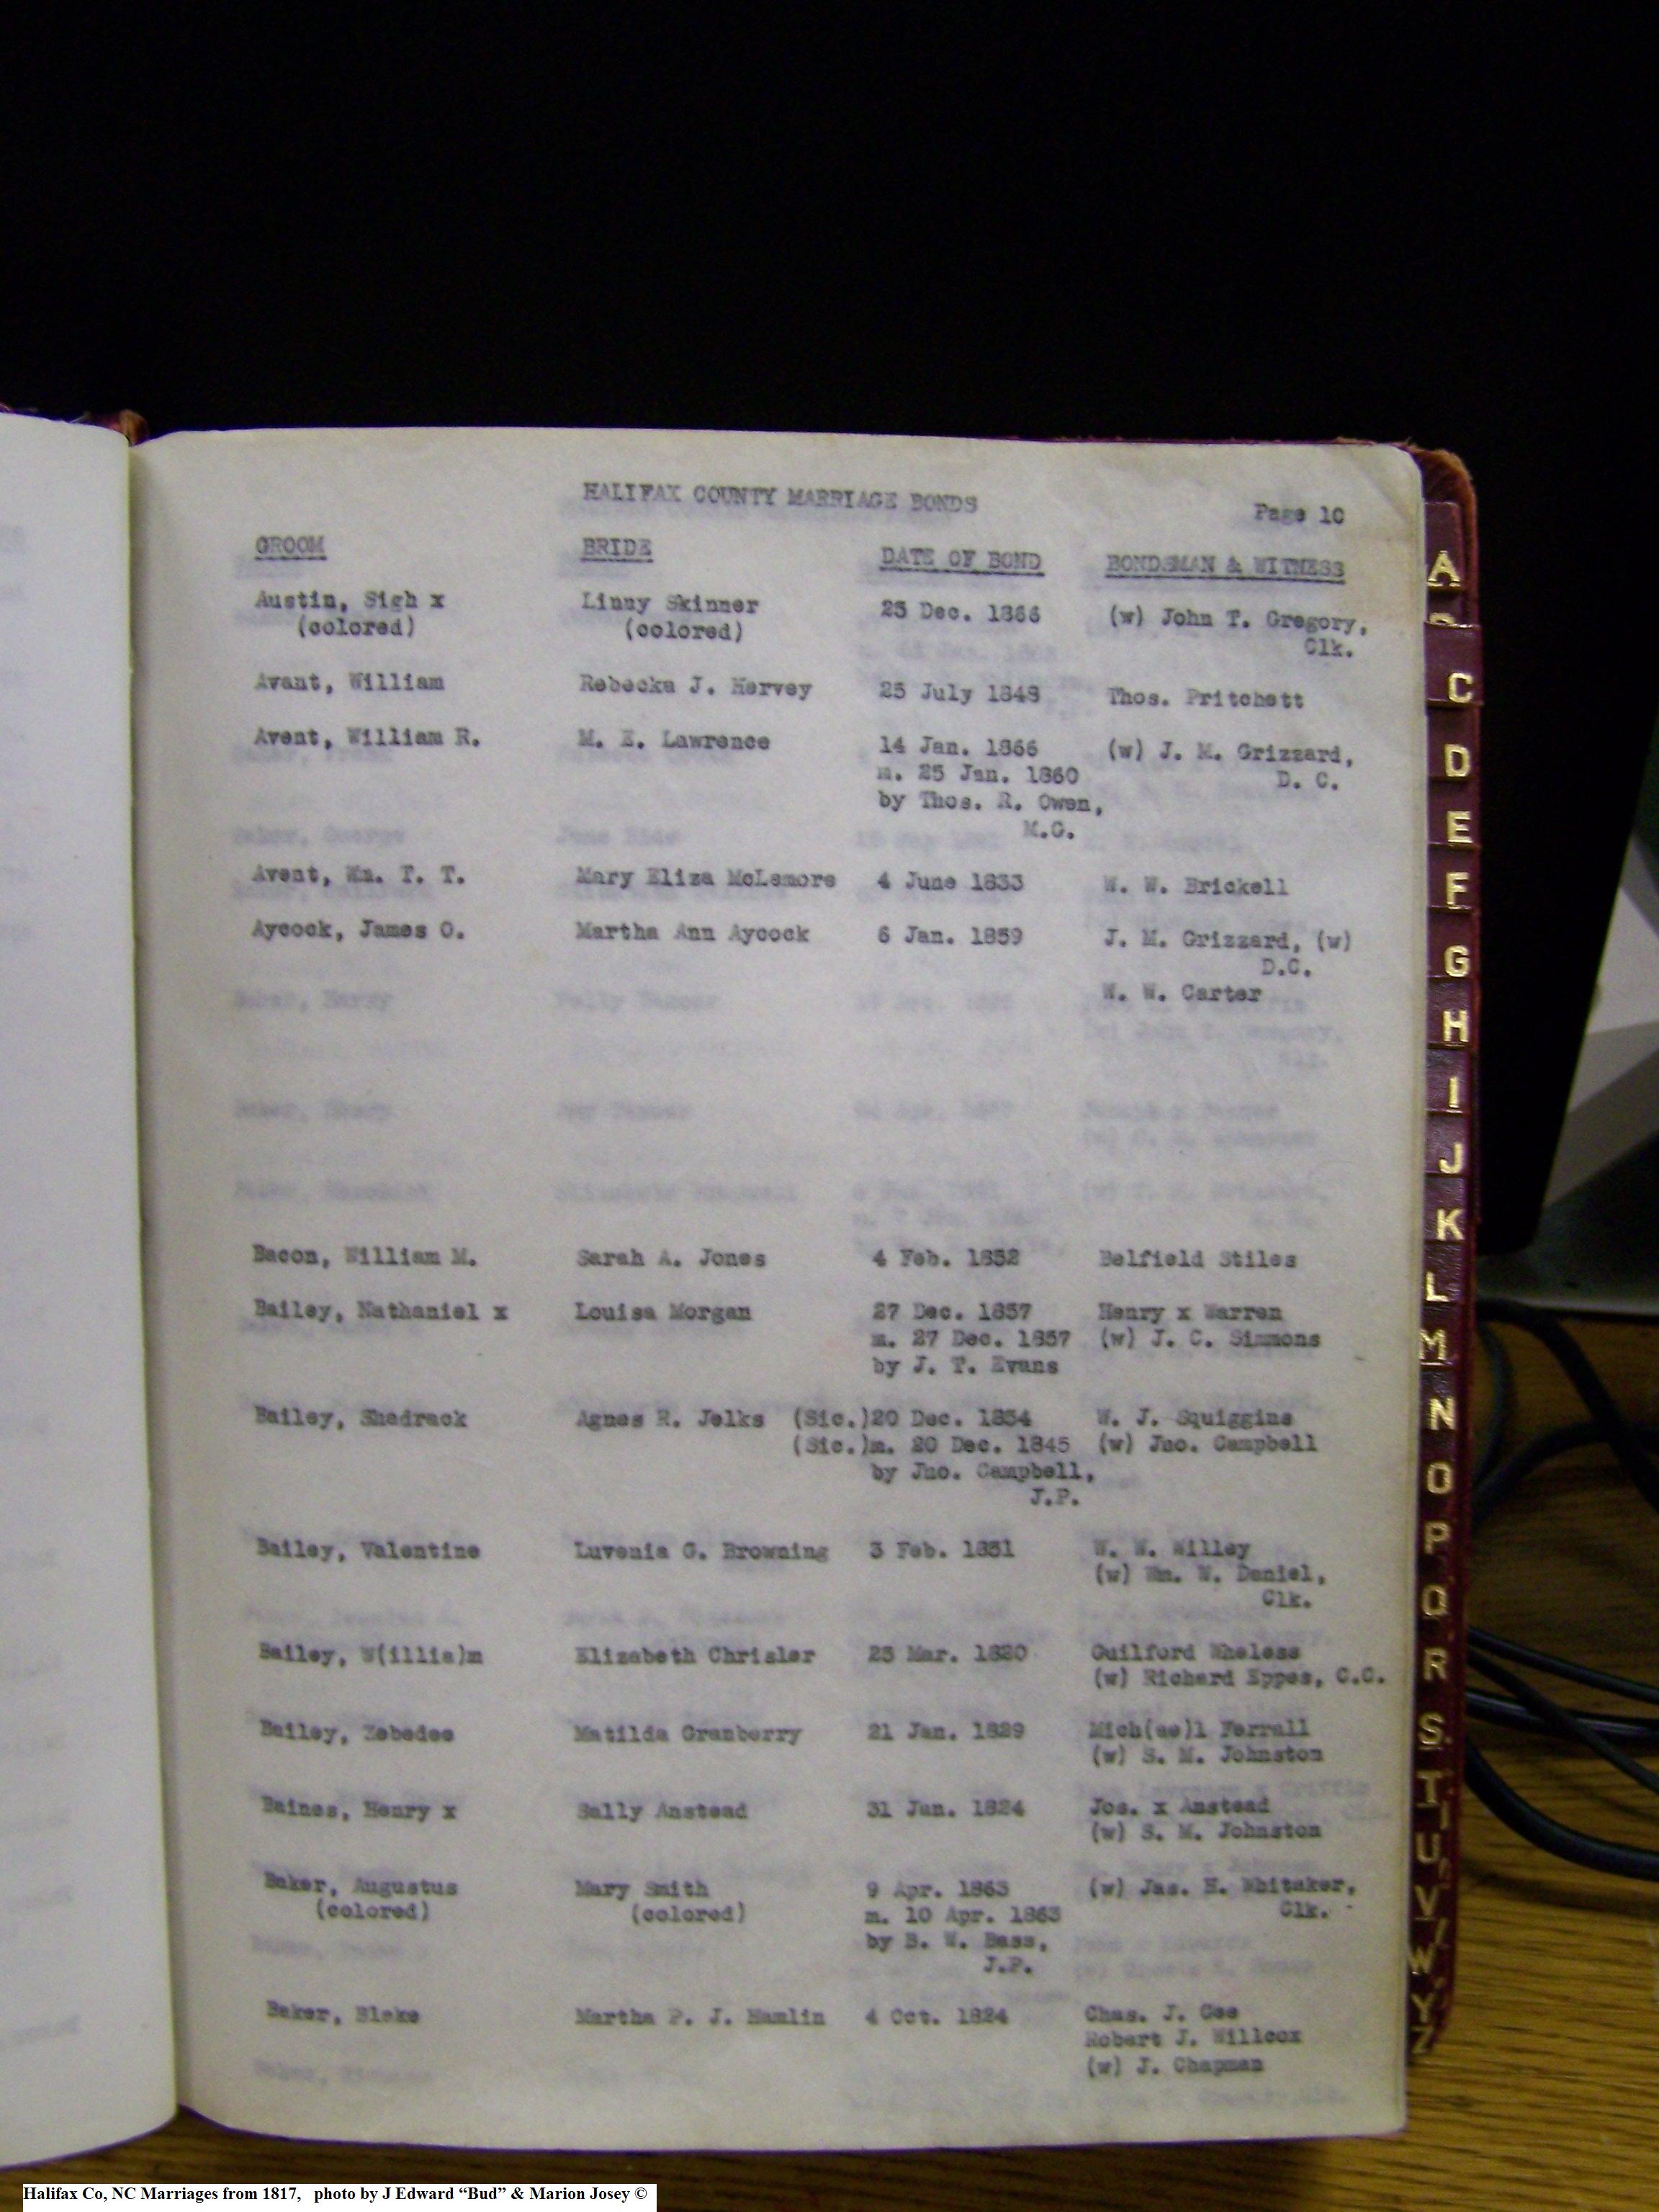 HALIFAX COUNTY MARRIAGE BONDS Page 10
GROOM BRIDE DATE OF BOND BONDSMAN & WITNESS
Austin, Sigh x Linny Skinner 25 Dec. 1866 (w) John T. Gregory,
(colored) (colored) Clk.
Avant, William Rebecka J. Hervey 25 July 1848 Thos. Pritchett
Avent, William R. M. E. Lawrence 14 Jan. 1866 (w) J. M. Grizzard,
m. 25 Jan. 1860 D. C.
by Thos. R. Owen,
M.G.
Avent, Wm. T. T. Mary Eliza McLemore 4 June 1833 W. W. Brickell
Aycock, James O. Martha Ann Aycock 6 Jan. 1859 J. M. Grizzard, (w)
D.C.
W. W. Carter
Bacon, William M. Sarah A. Jones 4 Feb. 1852 Belfield Stiles
Bailey, Nathaniel x Louisa Morgan 27 Dec. 1857 Henry x Warren
m. 27 Dec. 1857 (w) J. C. Simmons
by J. T. Evans
Bailey, Shadrack Agnes R. Jelks (Sic.)20 Dec. 1854 W. J. Squiggins
(Sic.)m. 20 Dec. 1845 (w) Jno. Campbell
by Jno. Campbell,
J.P.
Bailey, Valentine Luvenia G. Browning 3 Feb. 1851 W. W. Willey
(w) Wm. W. Daniel,
Clk.
Bailey, W(illia)m Elizabeth Chrisler 25 Mar. 1820 Guilford Wheless
(w) Richard Eppes, C.C.
Bailey, Zebedee Matilda Granberry 21 Jan. 1829 Mich(ae)l Ferrall
(w) S. M. Johnston
Baines, Henry x Sally Anstead 31 Jan. 1824 Jos. x Anstead
(w) S. M. Johnston
Baker, Augustus Mary Smith 9 Apr. 1863 (w) Jas. H. Whitaker,
(colored) (colored) m. 10 Apr. 1863 Clk.
by B. W. Bass,
J.P.
Baker, Blake Martha P. J. Hamlin 4 Oct. 1824 Chas. J. Gee
Robert J. Willcox
(w) J. Chapman
A
C
D
E
F
G
H
I
J
K
L
M
N
O
P
Q
R
S
T
U
V
W
Y
Z
Halifax Co, NC Marriages from 1817, photo by J Edward “Bud” & Marion Josey ©